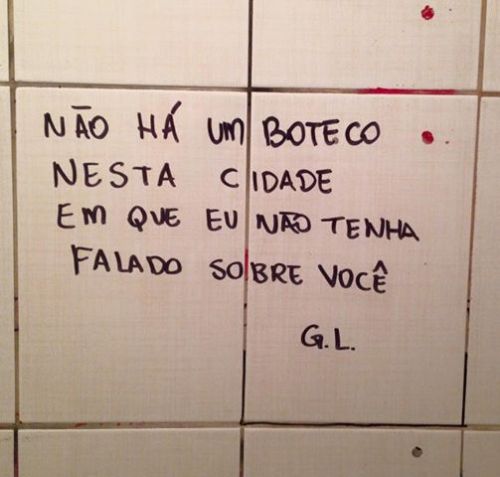 NÃO HÁ UM BOTECO
NESTA CIDADE
EM QUE EU NÃO TENHA
FALADO SOBRE VOCÊ
G.L.